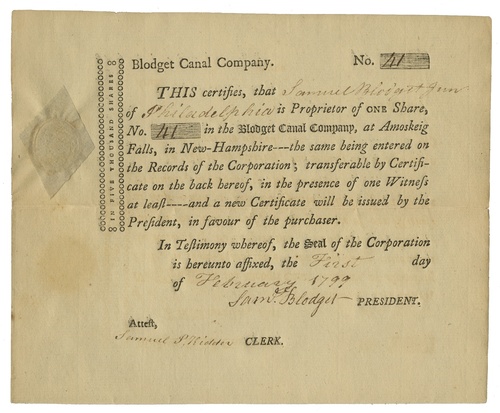 Blodget Canal Company. No. 41
THIS certifies, that Samuel Blodget Jun
of Philadelphia is Proprietor of ONE Share,
No. 41 in the Blodget Canal Company, at Amoskeig
Falls, in New-Hampshire---the same being entered on
the Records of the Corporation; transferable by Certifi-
cate on the back hereof, in the presence of one Witness
at least----and a new Certificate will be issued by the
President, in favour of the purchaser.
In Testimony whereof, the Seal of the Corporation
is hereunto affixed, the First day
of February 1799
Saml. Blodget PRESIDENT.
Attest,
Samuel P. Kidder CLERK.
IN FIVE THOUSAND SHARES